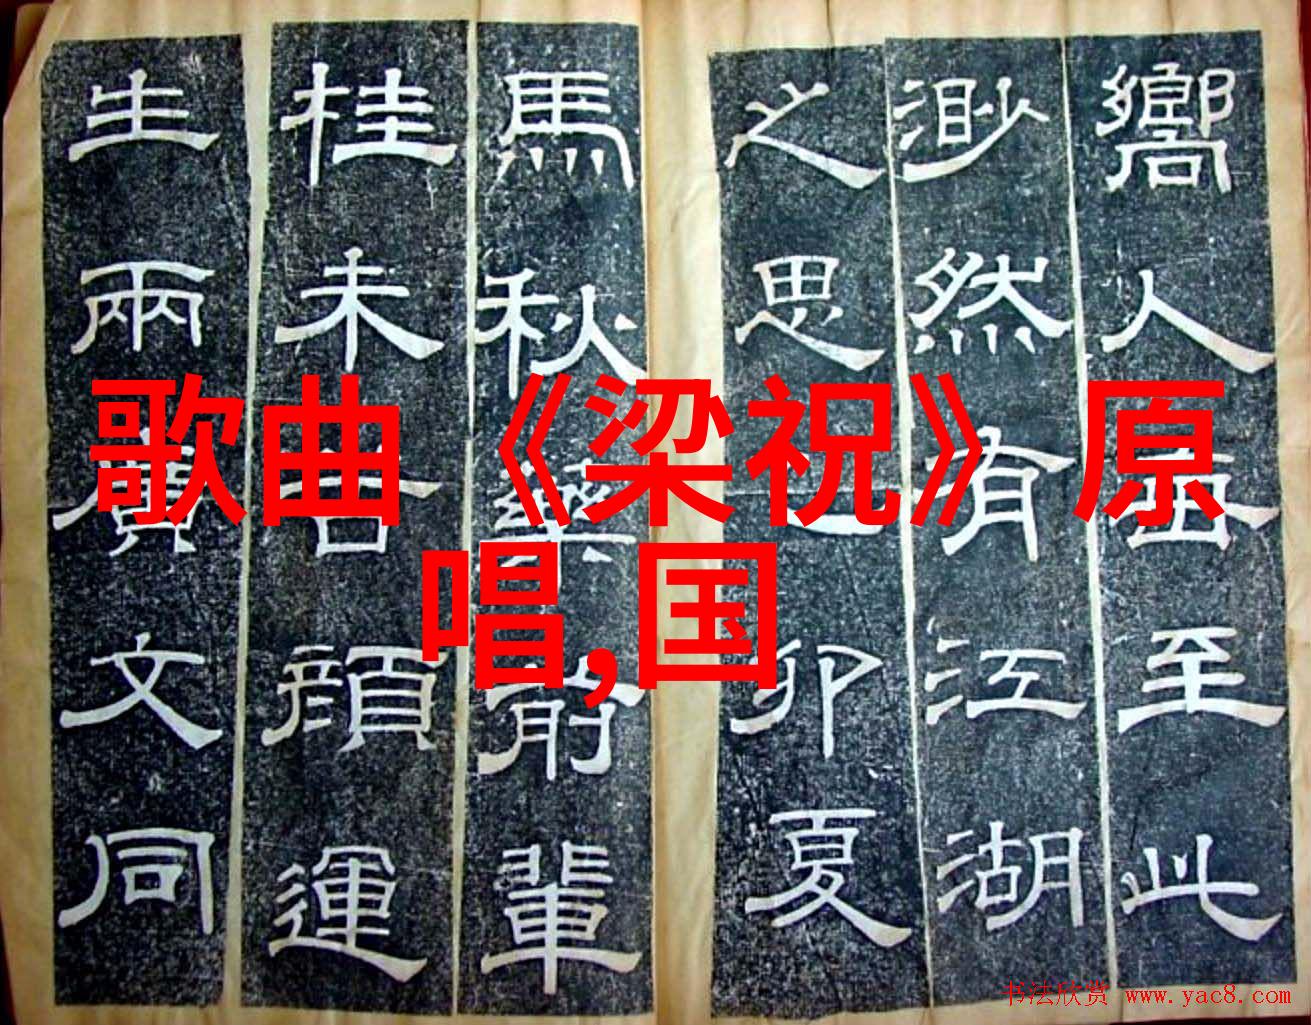 嚮人至此
渺然有江湖
之思卯夏
馬秋藥前輩
桂未谷顏運
生兩廣文同
歌曲《梁祝》原
唱,国
书法欣赏 www.yac8.com